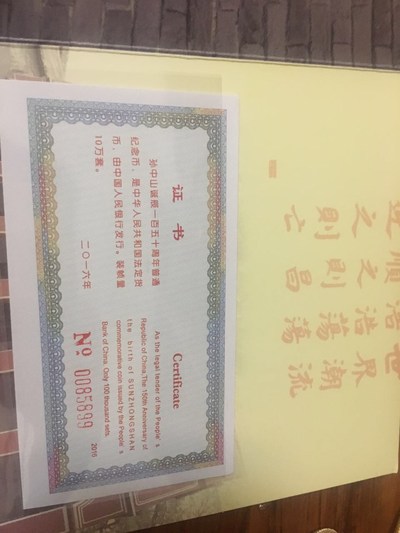 证 书
孙中山诞辰一百五十周年普通
纪念币，是中华人民共和国法定货
币，由中国人民银行发行。装帧量
10万套。
二〇一六年
Certificate
As the legal lender of the People's
Republic of China, The 150th Aniversary of
the birth of SUNZHONGSHAN
commemorative coin issued by the People's
Bank of China. Only 100 thousand sets.
2016
No 0085899
世界潮流
浩浩蕩蕩
順之則昌
逆之則亡